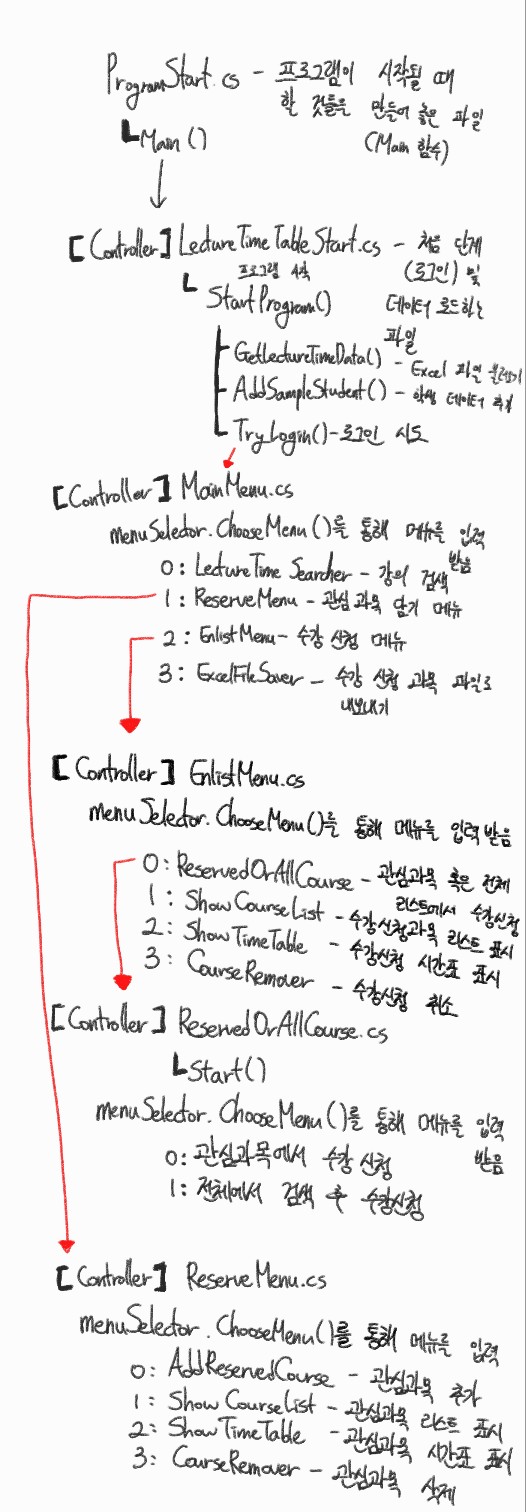 ProgramStart.cs - 프로그램이 시작될 때
할 것들을 만들어 놓은 파일
┗Main () (Main 함수)
[Controller] LectureTimeTableStart.cs - 처음 단계
프로그램 시작 (로그인) 및
┗ StartProgram() 데이터 로드하는
파일
GetLectureTimeData() - Excel 파일 불러오기
AddSampleStudent() - 학생 데이터 추가
TryLogin() - 로그인 시도
[Controller] MainMenu.cs
menuSelector.ChooseMenu()를 통해 메뉴를 입력
받음
0: LectureTime Searcher - 강의 검색
1: ReserveMenu - 관심과목 담기 메뉴
2: EnlistMenu - 수강 신청 메뉴
3: ExcelFileSaver - 수강 신청 과목 파일로
내보내기
[Controller] EnlistMenu.cs
menuSelector.ChooseMenu()를 통해 메뉴를 입력받음
0: ReservedOrAllCourse - 관심과목 혹은 전체
리스트에서 수강신청
1: ShowCourseList - 수강신청과목 리스트 표시
2: ShowTimeTable - 수강신청 시간표 표시
3: CourseRemover - 수강신청 취소
[Controller] ReservedOrAllCourse.cs
┗Start()
menuSelector.ChooseMenu()를 통해 메뉴를 입력
받음
0: 관심과목에서 수강 신청
1: 전체에서 검색 후 수강신청
[Controller] ReserveMenu.cs
menuSelector.ChooseMenu()를 통해 메뉴를 입력
0: AddReservedCourse - 관심과목 추가
1: ShowCourseList - 관심과목 리스트 표시
2: ShowTimeTable - 관심과목 시간표 표시
3: CourseRemover - 관심과목 삭제